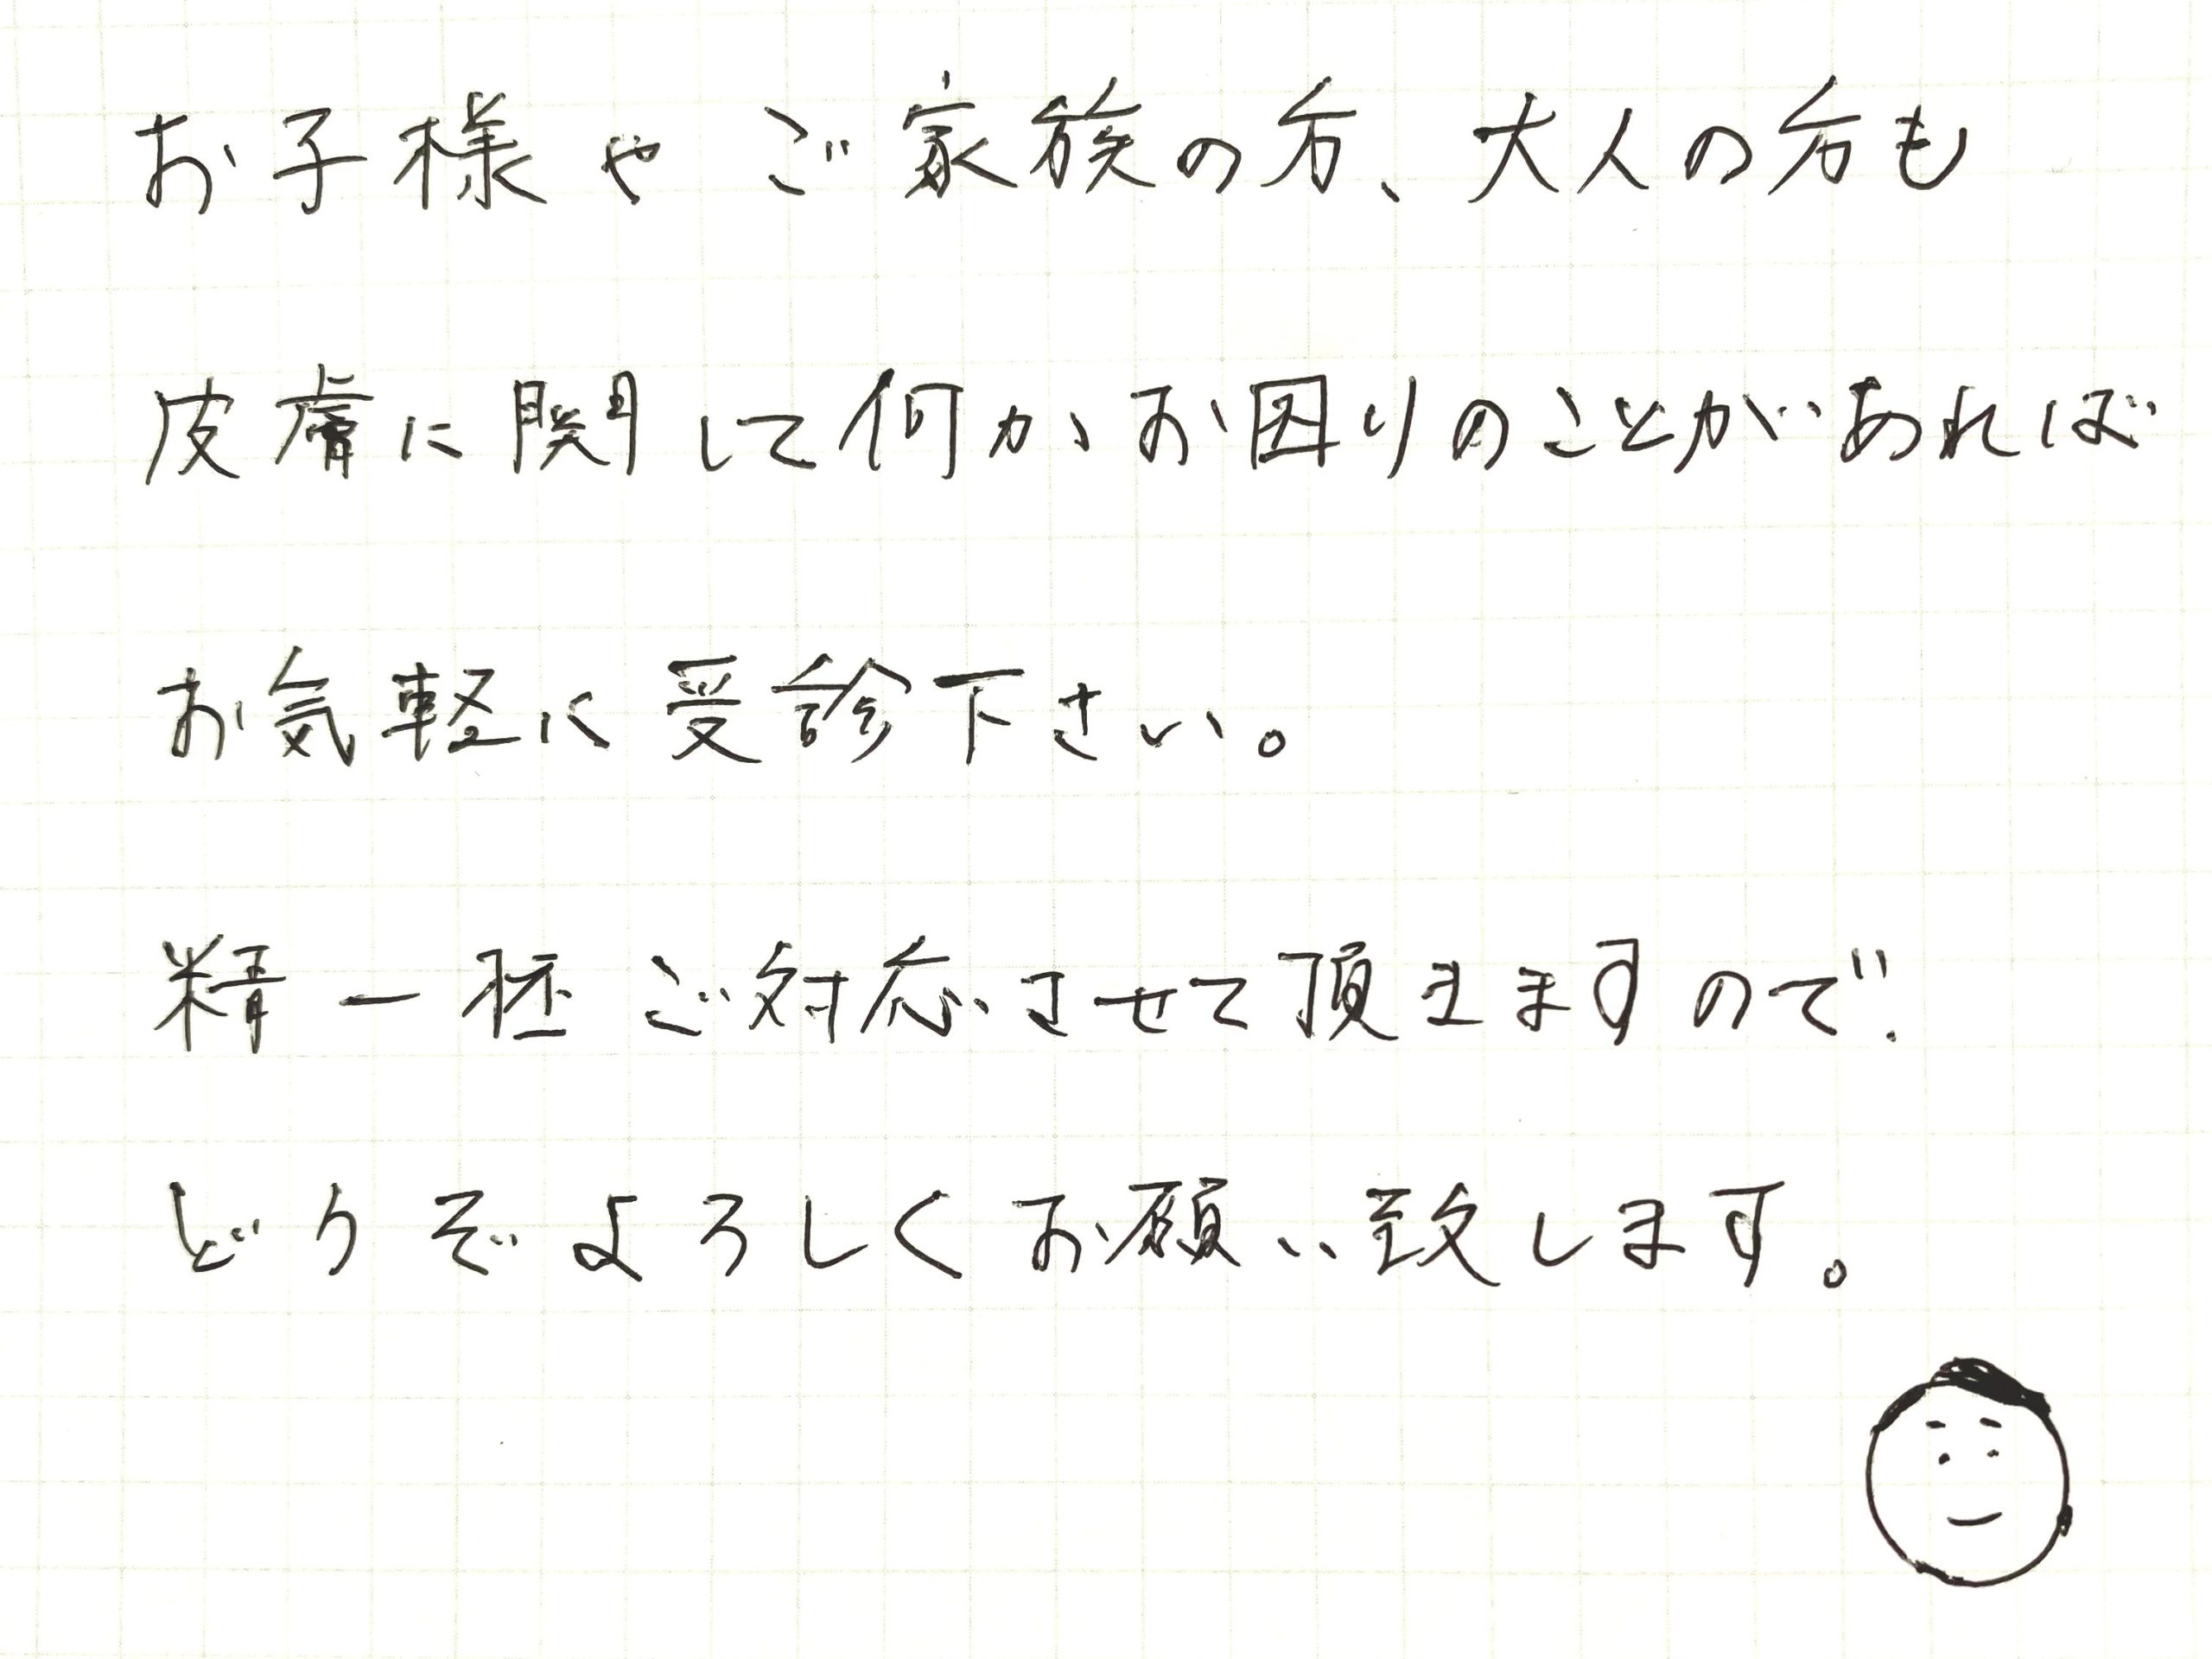 お子様やご家族の方、大人の方も
皮膚に関して何かお困りのことがあれば
お気軽に受診下さい。
精一杯ご対応させて頂きますので、
どうぞよろしくお願い致します。